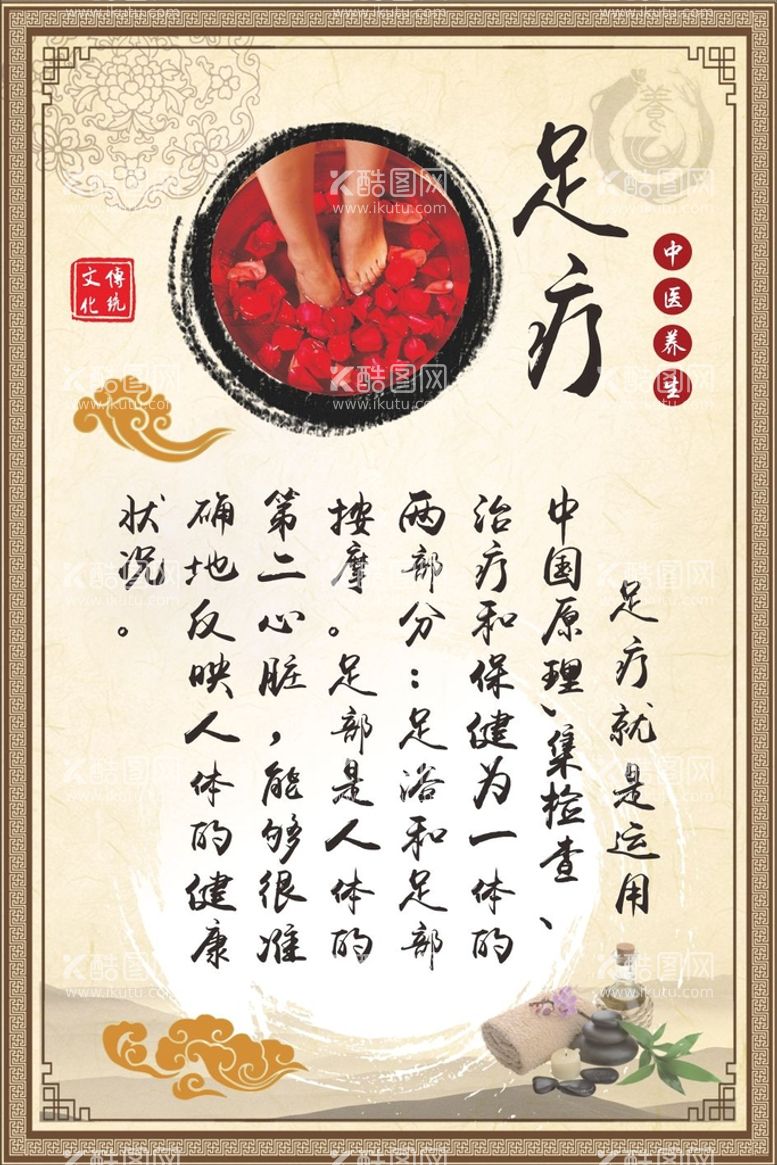 養
足疗
中医养生
傳統
文化
足疗就是运用
中国原理、集检查、
治疗和保健为一体的
两部分：足浴和足部
按摩。足部是人体的
第二心脏，能够很准
确地反映人体的健康
状况。
酷图网
www.ikutu.com